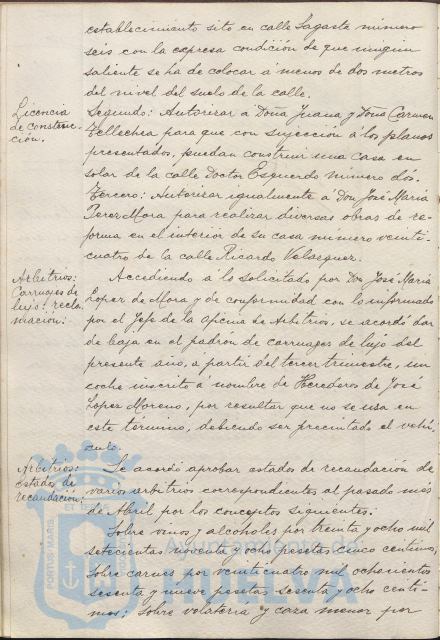 establecimiento sito en calle Sagasta número
seis con la expresa condición de que ningún
saliente se ha de colocar á menos de dos metros
del nivel del suelo de la calle.
Licencia
de construc-
ción.
Segundo: Autorizar a Doña Juana y Doña Carmen
Tellechea para que con sujección á los planos
presentados, puedan construir una casa en
solar de la calle Doctor Esquerdo número dos.
Tercero: Autorizar igualmente á Don José Maria
Perez Mora para realizar diversas obras de re-
forma en el interior de su casa número veinti-
cuatro de la calle Ricardo Velazquez.
Arbitrios:
Carruages de
lujo: recla-
mación:
Accediendo á lo solicitado por Don José Maria
Lopez de Mora y de conformidad con lo informado
por el Jefe de la Oficina de Arbitrios, se acordó dar
de baja en el padron de carruages de lujo del
presente año, a partir del tercer trimestre, un
coche inscrito a nombre de Herederos de José
Lopez Moreno, por resultar que no se usa en
este término, debiendo ser precintado el vehí-
culo.
Arbitrios:
estados de
recaudación:
Se acordó aprobar estados de recaudación de
varios arbitrios correspondientes al pasado mes
de Abril por los conceptos siguientes:
Sobre vinos y alcoholes por treinta y ocho mil
setecientas noventa y ocho pesetas cinco centimos;
Sobre carnes por veinticuatro mil ochocientas
sesenta y nueve pesetas sesenta y ocho centi-
mos; Sobre volatería y caza menor por
PORTUS MARIS
ET TERRAE
Ayuntamiento de
HUELVA